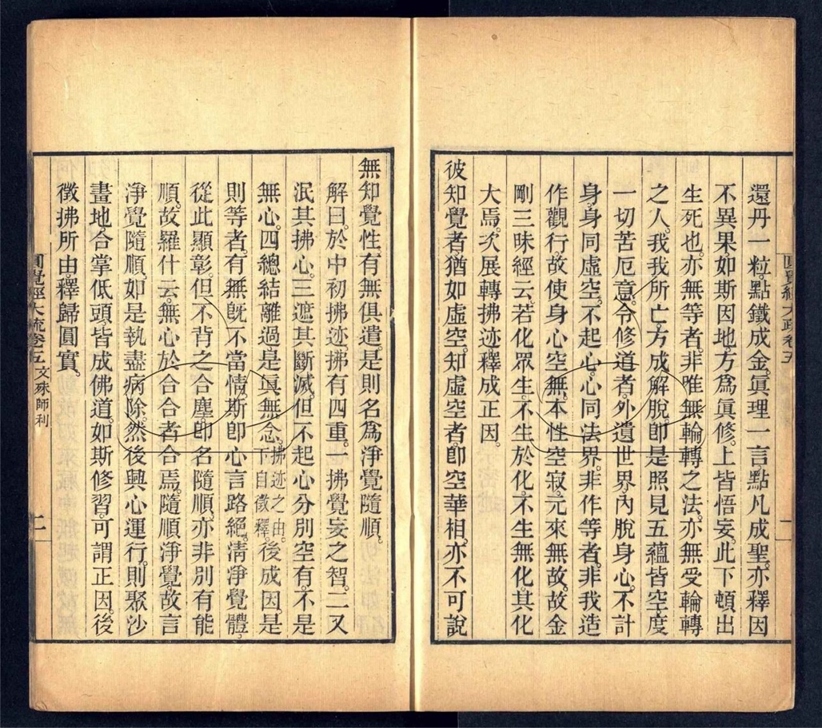 還丹一粒。點鐵成金。眞理一言。點凡成聖。亦釋因
不異果。如斯因地。方爲眞修。上皆悟妄。此下頓出
生死也。亦無等者。非唯無輪轉之法。亦無受輪轉
之人。我我所亡。方成解脫。卽是照見五蘊皆空。度
一切苦厄。意令修道者。外遺世界。內脫身心。不計
身。身同虛空。不起心。心同法界。非作等者。非我造
作觀行。故使身心空無。本性空寂。元來無故。故金
剛三昧經云。若化眾生。不生於化。不生無化。其化
大焉。次展轉拂迹。釋成正因。
彼知覺者。猶如虛空。知虛空者。卽空華相。亦不可說
圓覺經大疏卷五
無知覺性。有無俱遣。是則名爲淨覺隨順。
解曰。於中初拂迹。拂有四重。一拂覺妄之智。二又
泯其拂心。三遮其斷滅。但不起心分別空有。不是
無心。四總結離過。是眞無念。拂迹之由。下自徵釋。後成因。是
則等者。有無旣不當情。斯卽心言路絕。淸淨覺體。
從此顯彰。但不背之合塵。卽名隨順。亦非別有能
順。故羅什云。無心於合。合者合焉。隨順淨覺。故言
淨覺隨順。如是執盡病除。然後興心運行。則聚沙
畫地。合掌低頭。皆成佛道。如斯修習。可謂正因。後
徵拂所由。釋歸圓實。
圓覺經大疏卷五 文殊師利 二